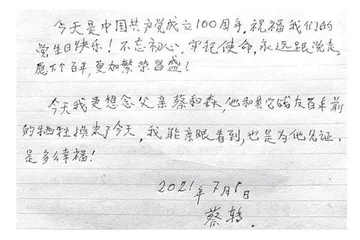 今天是中国共产党成立100周年，祝福我们的
党生日快乐！不忘初心，牢记使命，永远跟党走，
愿下个百年，更加繁荣昌盛！
今天我更想念父亲蔡和森，他和其它战友百年前
的牺牲换来了今天，我能亲眼看到，也是为他见证，
是多幸福！
2021年7月1日
蔡转.